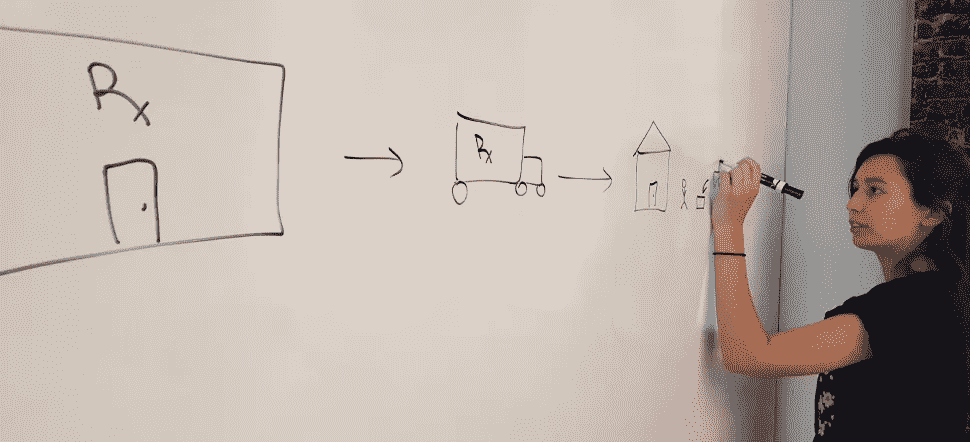 Rx
Rx